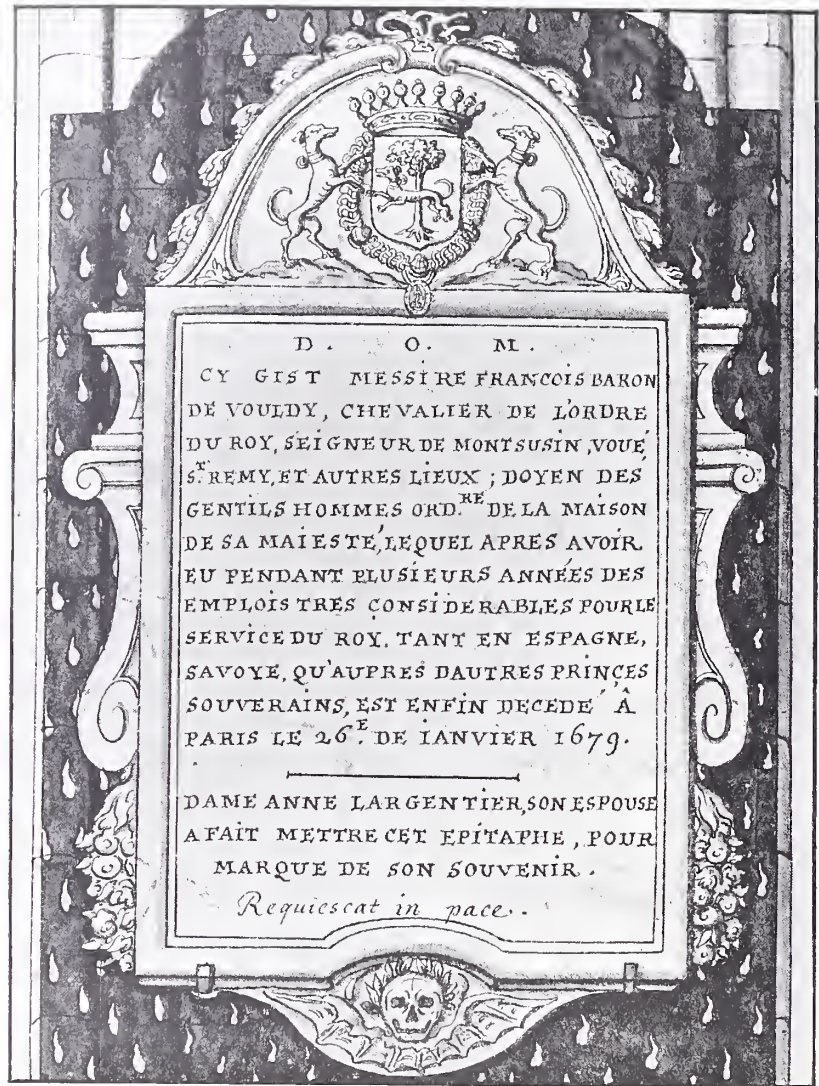 D . O. M .
CY GIST MESSIRE FRANCOIS BARON
DE VOULDY, CHEVALIER DE L'ORDRE
DU ROY, SEIGNEUR DE MONTSUSIN, VOUÉ,
S.T REMY, ET AUTRES LIEUX ; DOYEN DES
GENTILS HOMMES ORD.RE DE LA MAISON
DE SA MAIESTÉ, LEQUEL APRES AVOIR
EU PENDANT PLUSIEURS ANNÉES DES
EMPLOIS TRES CONSIDERABLES POUR LE
SERVICE DU ROY, TANT EN ESPAGNE,
SAVOYE, QU'AUPRES DAUTRES PRINCES
SOUVERAINS, EST ENFIN DECEDÉ Â
PARIS LE 26.E DE IANVIER 1679.
DAME ANNE LARGENTIER, SON ESPOUSE
A FAIT METTRE CET EPITAPHE, POUR
MARQUE DE SON SOUVENIR.
Requiescat in pace..